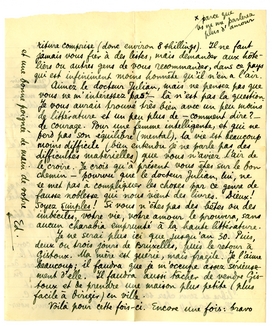 & parce que
je ne parlerai
plus d'amour
riture comprise (donc environ 8 shillings). Il ne faut
jamais vous fier à des bêtes; mais demander aux hôte-
liers ou autres gens de vous recommander, dans ce pays
qui est infiniment moins honnête qu'il n'en a l'air.
Aimez le docteur Julian, mais ne pensez pas que
vous ne m'intéressez pas? — là n'est pas la question.
Je vous aurais trouvé très bien avec un peu moins
de littérature et un peu plus de — comment dire? —
de courage. Pour une femme intelligente, et qui ne
perd pas son équilibre (mental), la vie est beaucoup
moins difficile (bien entendu je ne parle pas des
difficultés matérielles) que vous n'avez l'air de
le croire. Je crois qu'à présent vous êtes sur le bon
chemin — pourvu que le docteur Julian, lui, ne
se met pas à compliquer les choses par ce genre de
fausse noblesse qui nous vient des livres. Mieux!
Soyez simples! Si vous n'êtes pas des bêtes ou des
imbéciles, votre vie, votre amour le prouvera, sans
aucun charabia emprunté à la haute littérature.
Je ne serai plus ici que jusqu'au 30. Puis
deux ou trois jours de Bruxelles, puis le retour à
Gistoux. Ma mère est guérie, mais fragile. Je l'aime
beaucoup; il faudra que je m'occupe assez sérieuse-
ment d'elle. Il faudra aussi tâcher de vendre Gis-
toux et de prendre une maison plus petite (plus
facile à diriger), en ville.
Voilà pour cette fois-ci. Encore une fois: bravo
et une bonne poignée de mains de votre Ed.